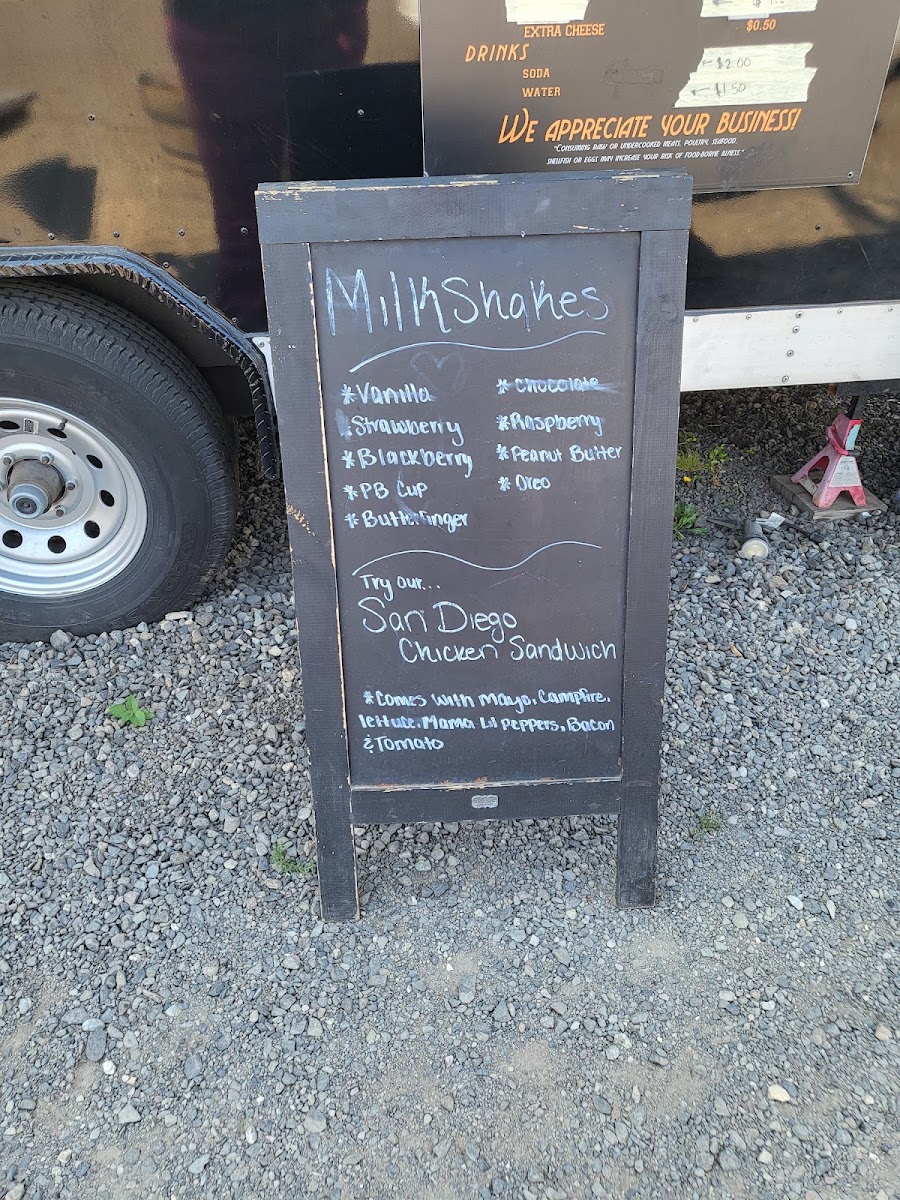 EXTRA CHEESE
$0.50
DRINKS
SODA
$2.00
WATER
$1.50
WE APPRECIATE YOUR BUSINESS!
"CONSUMING RAW OR UNDERCOOKED MEATS, POULTRY, SEAFOOD,
SHELLFISH OR EGGS MAY INCREASE YOUR RISK OF FOOD-BORNE ILLNESS."
MilkShakes
*Vanilla
Strawberry
*Blackberry
*PB Cup
*Butterfinger
*Chocolate
*Raspberry
*Peanut Butter
*Oreo
Try our...
San Diego
Chicken Sandwich
*Comes with mayo, Campfire,
lettuce, Mama Lil peppers, Bacon
& Tomato